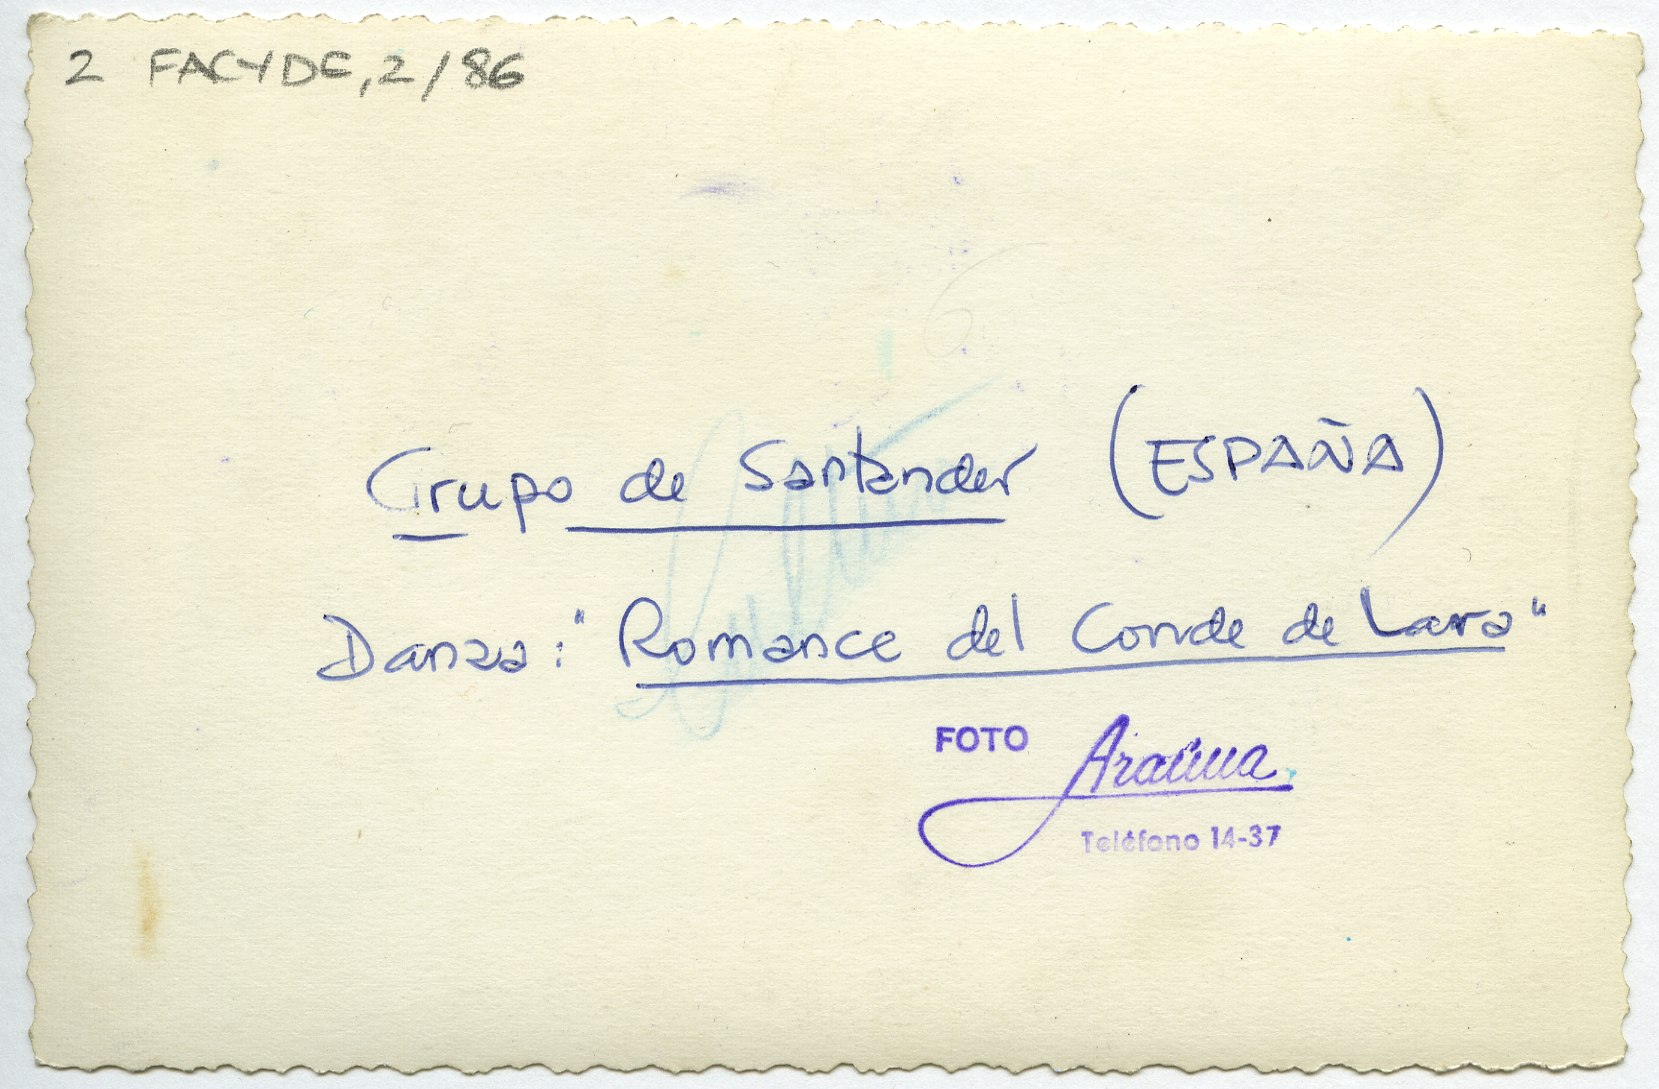 2 FACYDE, 2/86
Grupo de Santander (ESPAÑA)
Danza: "Romance del Conde de Lara"
FOTO
Teléfono 14-37